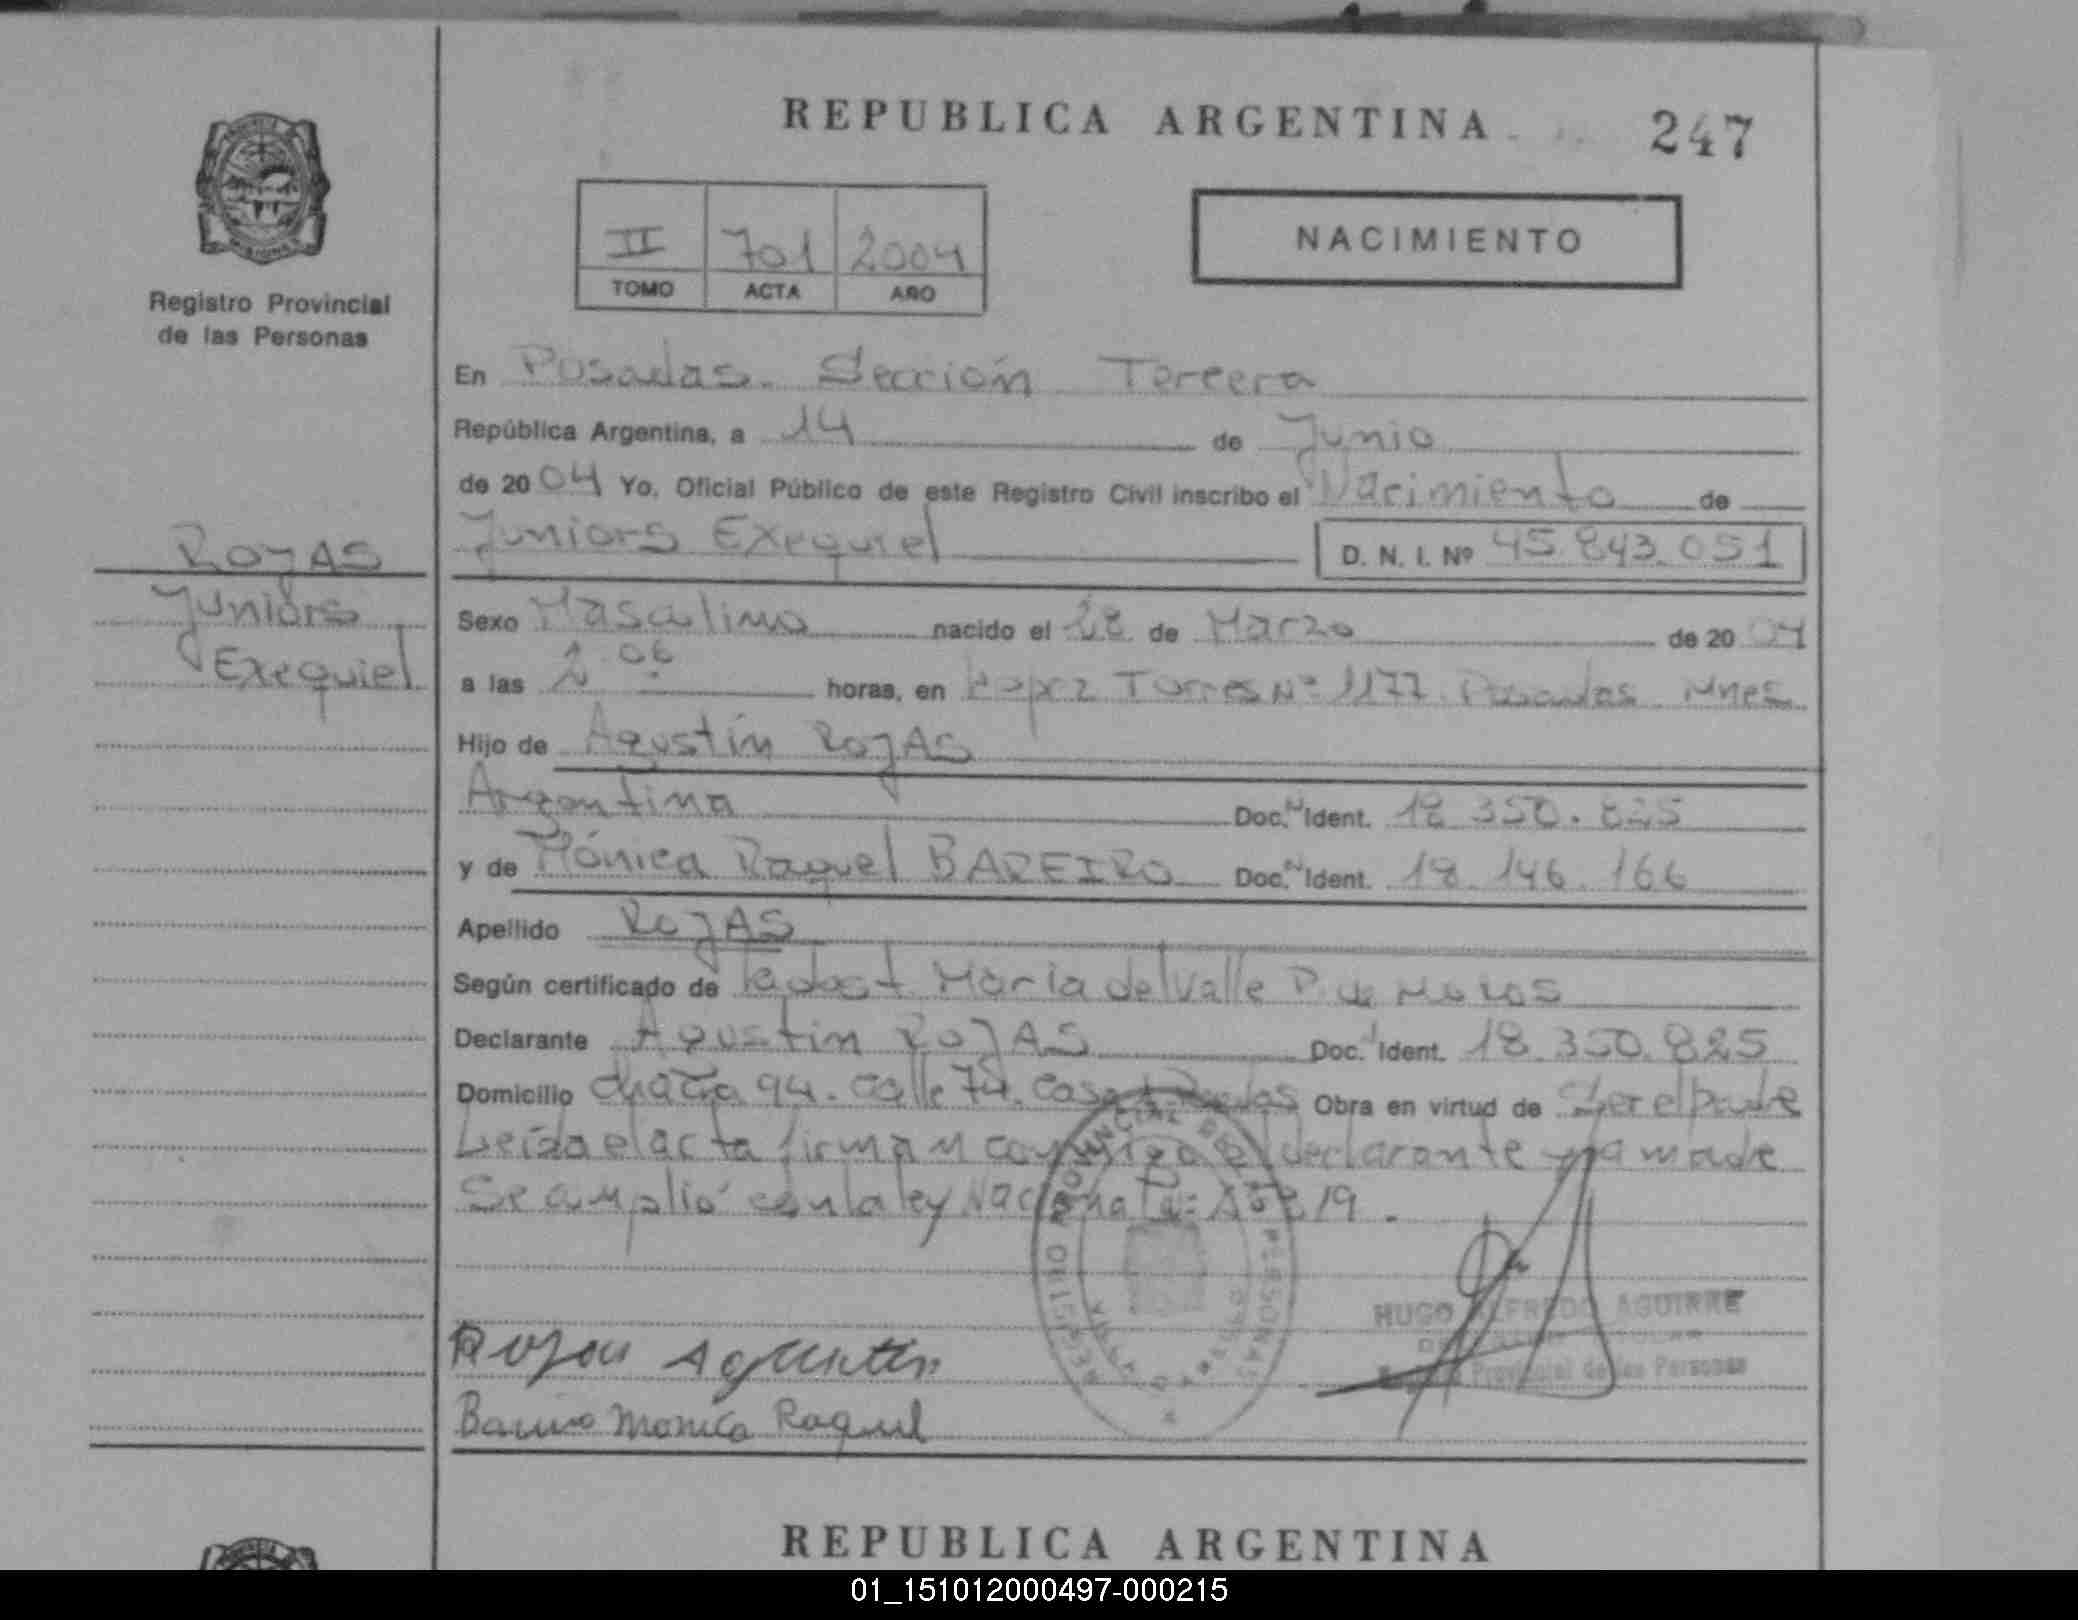 REPUBLICA ARGENTINA
247
NACIMIENTO
II 701 2004
TOMO ACTA AÑO
Registro Provincial
de las Personas
ROJAS
Juniors
Exequiel
En Posadas. Sección Tercera
República Argentina, a 14 de Junio
de 2004 Yo, Oficial Público de este Registro Civil inscribo el Nacimiento de
Juniors Exequiel D. N. I. Nº 45.843.051
Sexo Masculino nacido el 28 de Marzo de 2004
a las 06 horas, en Lopez Torres Nº 1177 Posadas Mnes
Hijo de Agustín ROJAS
Argentina Doc. Ident. 18.350.825
y de Mónica Raquel BAREIRO Doc. Ident. 18.146.166
Apellido ROJAS
Según certificado de María del Valle
Declarante Agustin ROJAS Doc. Ident. 18.350.825
Domicilio chacra 94. calle 74. casa Obra en virtud de Ser el padre
Leída el acta firman conmigo el declarante y la madre
Se amplió con la ley Nacional
REGISTRO PROVINCIAL DE LAS PERSONAS
HUGO ALFREDO AGUIRRE
Provincial de las Personas
Rojas Agustin
Bareiro Monica Raquel
REPUBLICA ARGENTINA
01_151012000497-000215